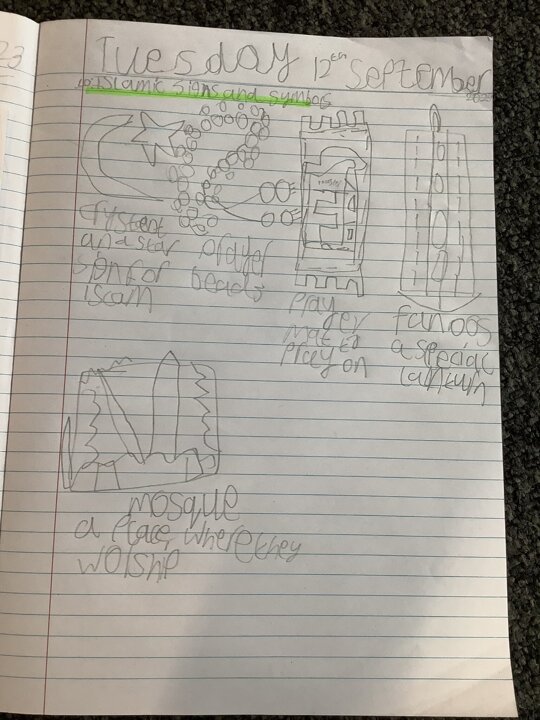 Tuesday 12th September
Islamic Signs and symbols
Crystent
and a star
sign for
islam
prayer
beads
Pray
er
mat to
Pray on
fanoos
a special
lanturn
mosque
a Place where they
worship